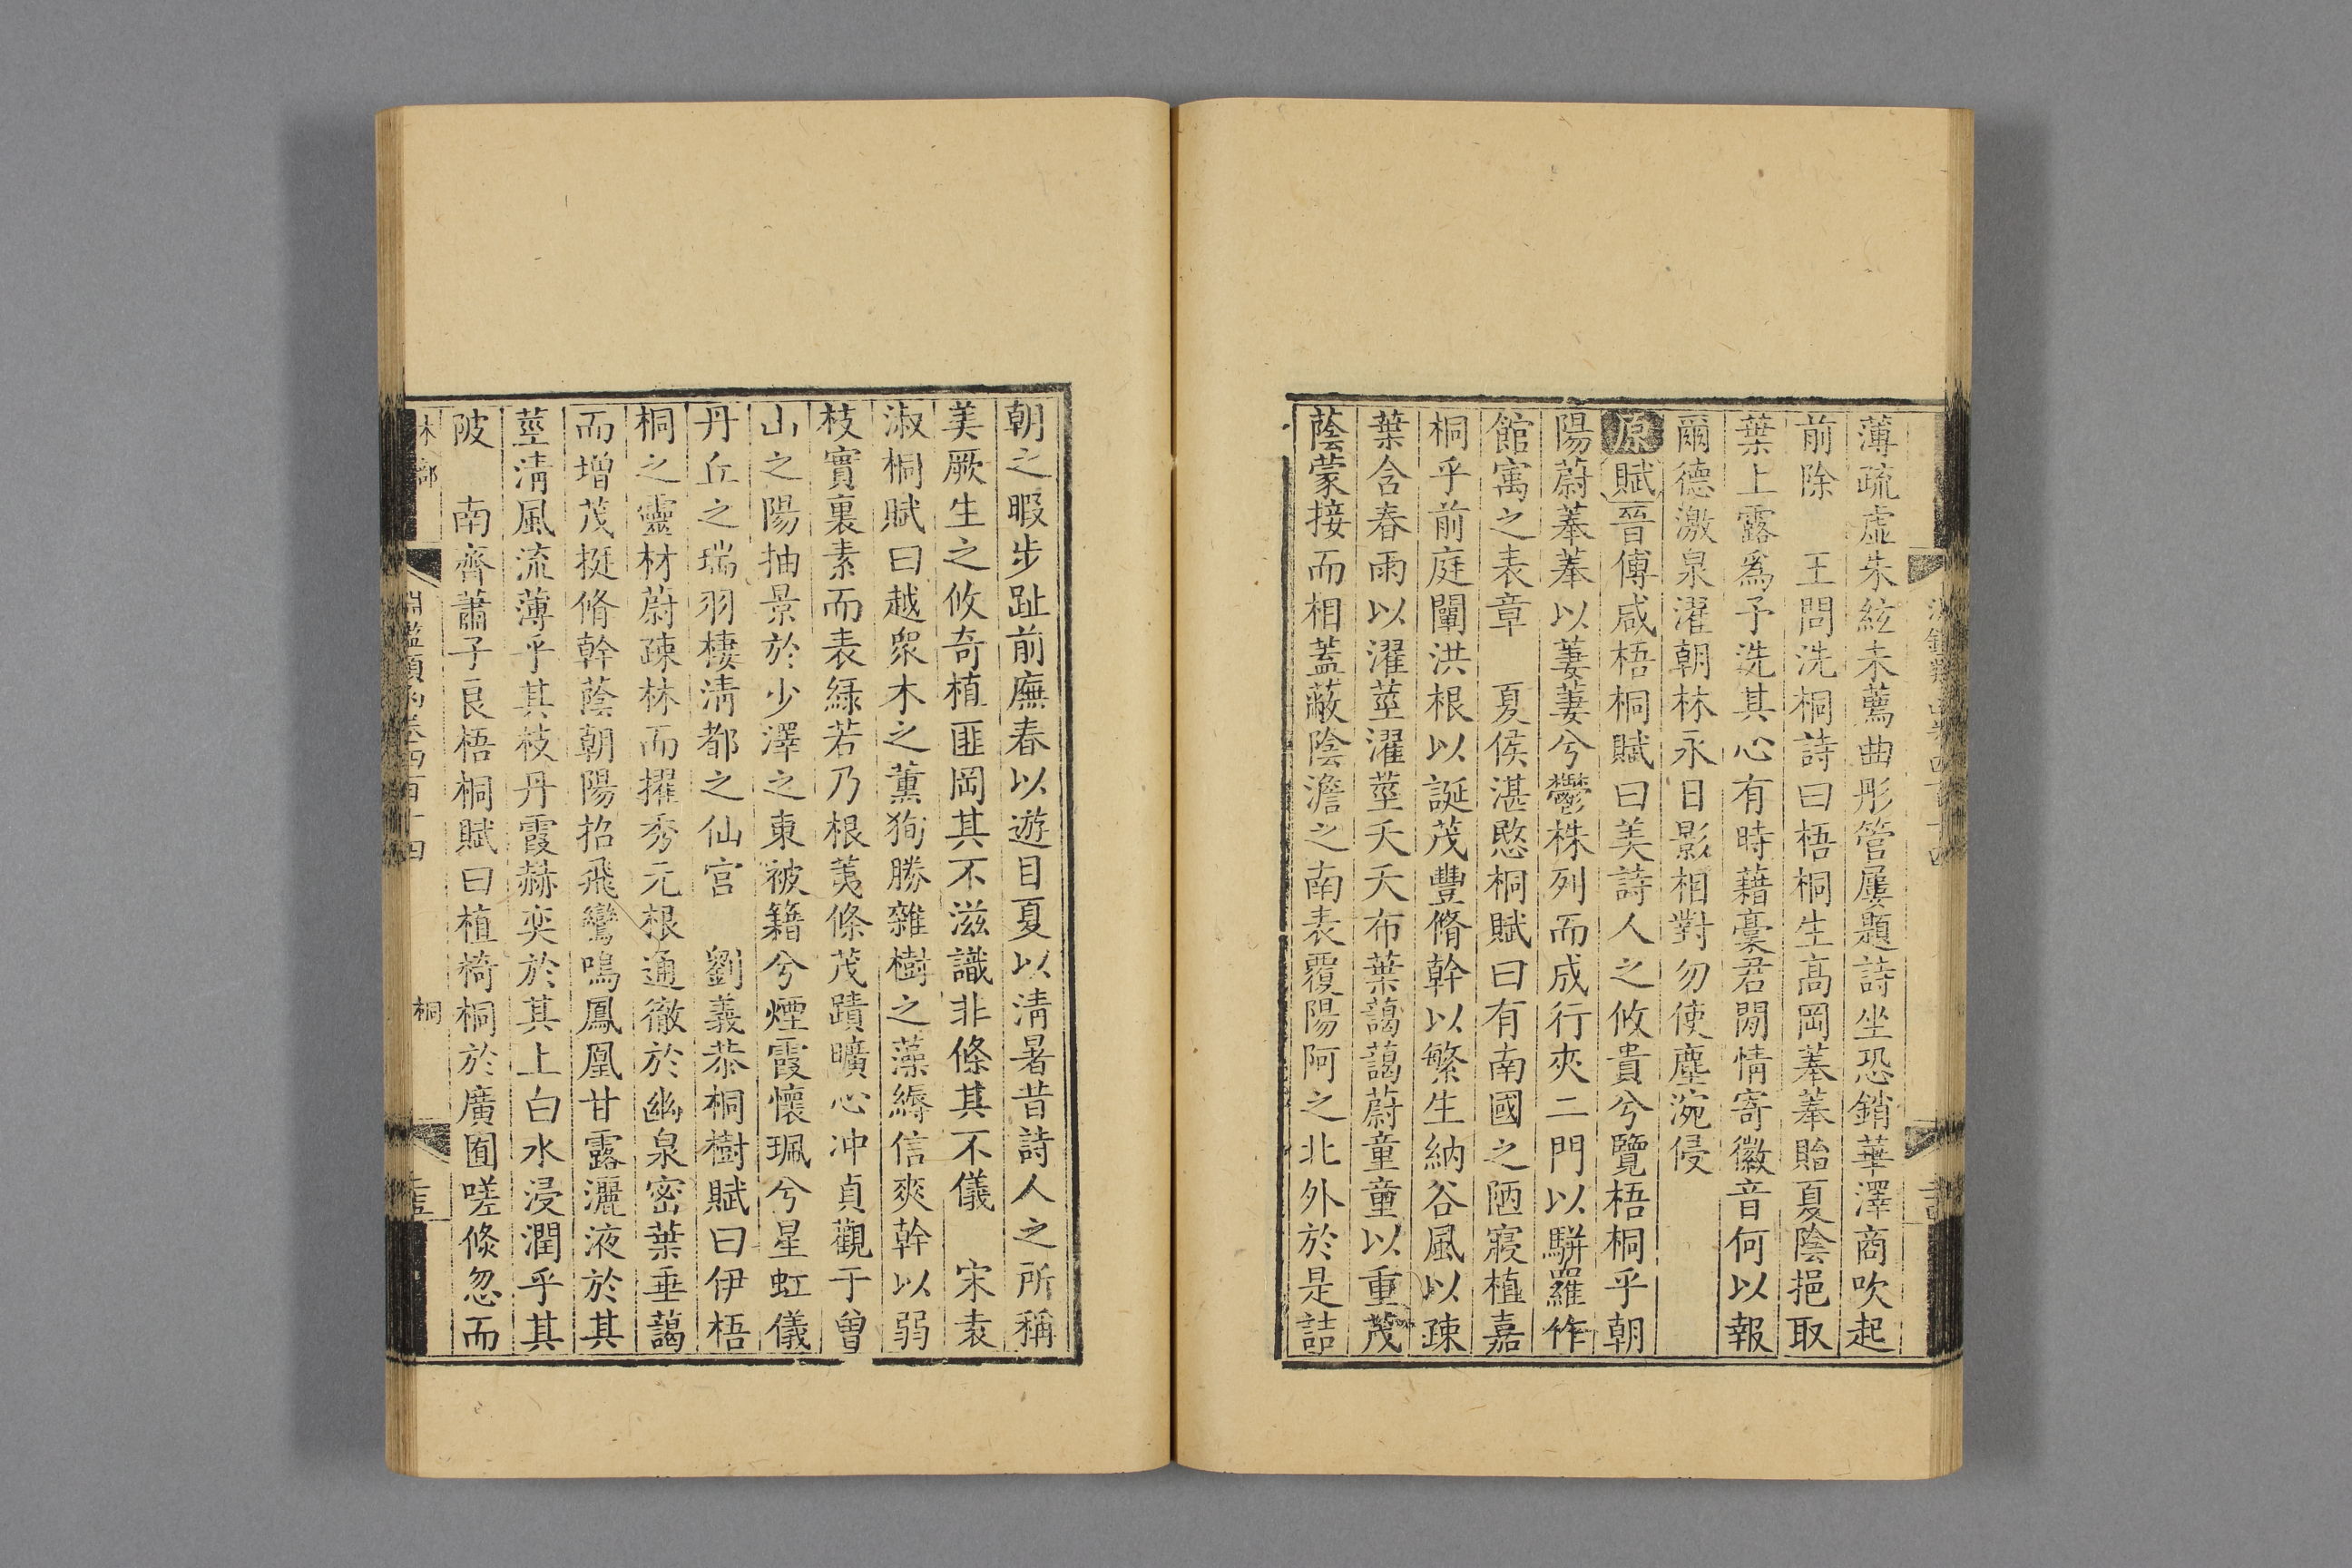 薄疏虛朱絃未薦曲彤管屢題詩坐恐銷華澤商吹起
前除　王問洗桐詩曰梧桐生高岡菶菶貽夏陰挹取
葉上露爲予洗其心有時藉槀君閒情寄徽音何以報
爾德激泉濯朝林永日影相對勿使塵涴侵
原賦晉傅咸梧桐賦曰美詩人之攸貴兮覽梧桐乎朝
陽蔚菶菶以萋萋兮鬱株列而成行夾二門以駢羅作
館寓之表章　夏侯湛愍桐賦曰有南國之陋寢植嘉
桐乎前庭闡洪根以誕茂豐脩幹以繁生納谷風以疎
葉含春雨以濯莖濯莖夭夭布葉藹藹蔚童童以重茂
蔭蒙接而相蓋蔽陰澹之南表覆陽阿之北外於是詰
朝之暇步趾前廡春以遊目夏以清暑昔詩人之所稱
美厥生之攸奇植匪岡其不滋識非條其不儀　宋袁
淑桐賦曰越衆木之薰狥勝雜樹之藻縟信爽幹以弱
枝實裏素而表綠若乃根荑條茂蹟曠心冲貞觀于曾
山之陽抽景於少澤之東被籍兮煙霞懷珮兮星虹儀
丹丘之瑞羽棲清都之仙宮　劉義恭桐樹賦曰伊梧
桐之靈材蔚疎林而擢秀元根通徹於幽泉密葉垂藹
而增茂挺脩幹蔭朝陽招飛鸞鳴鳳凰甘露灑液於其
莖清風流薄乎其枝丹霞赫奕於其上白水浸潤乎其
陂　南齊蕭子良梧桐賦曰植椅桐於廣囿嗟倐忽而
桐